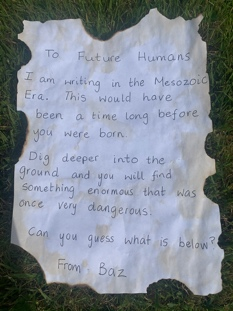 To Future Humans
I am writing in the Mesozoic
Era. This would have
been a time long before
you were born.
Dig deeper into the
ground and you will find
something enormous that was
once very dangerous.
Can you guess what is below?
From Baz